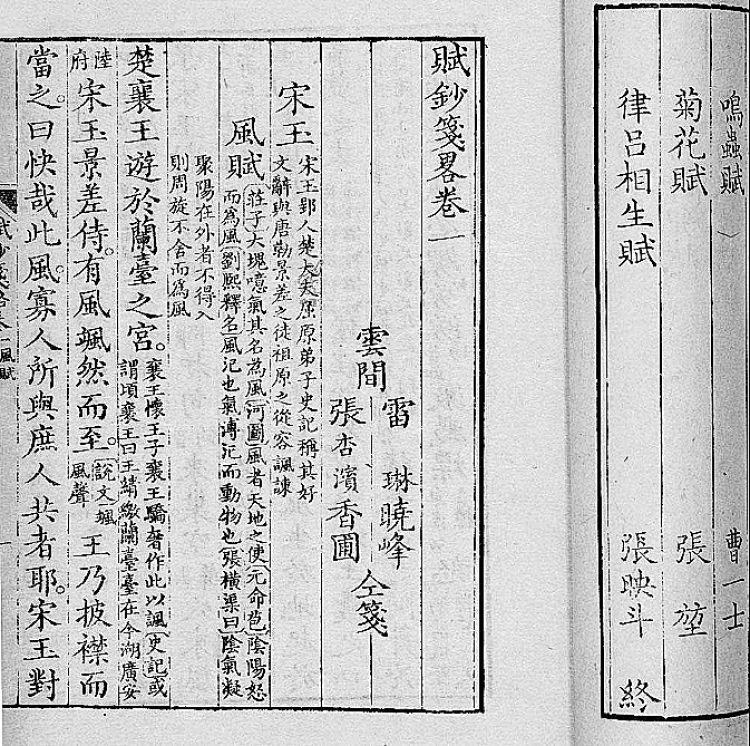 鳴蟲賦 曹一士
菊花賦 張堃
律呂相生賦 張映斗 終
賦鈔箋畧卷一
雷琳曉峰
雲間 仝箋
張杏濱香圃
宋玉 宋玉郢人楚大夫屈原弟子史記稱其好
文辭與唐勒景差之徒祖原之從容諷諫
風賦 莊子大塊噫氣其名為風河圖風者天地之使元命苞陰陽怒
而為風劉熙釋名風汜也氣溥汜而動物也張橫渠曰陰氣凝
聚陽在外者不得入
則周旋不舍而為風
楚襄王遊於蘭臺之宮。襄王懷王子襄王驕奢作此以諷史記或
謂頃襄王曰王綪繳蘭臺臺在今湖廣安
陸府 宋玉景差侍。有風颯然而至。說文颯風聲 王乃披襟而
當之。曰快哉此風。寡人所與庶人共者耶。宋玉對